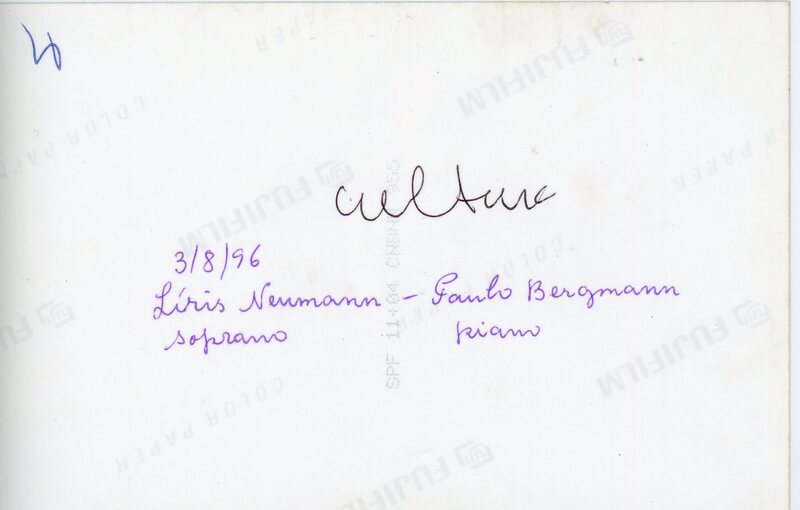 cultura
3/8/96
Líris Neumann – Paulo Bergmann
soprano piano
FUJIFILM
COLOR PAPER
FUJIFILM
COLOR PAPER
COLOR PAPER
FUJIFILM
FUJIFILM
FUJIFILM
COLOR PAPER
FUJIFILM